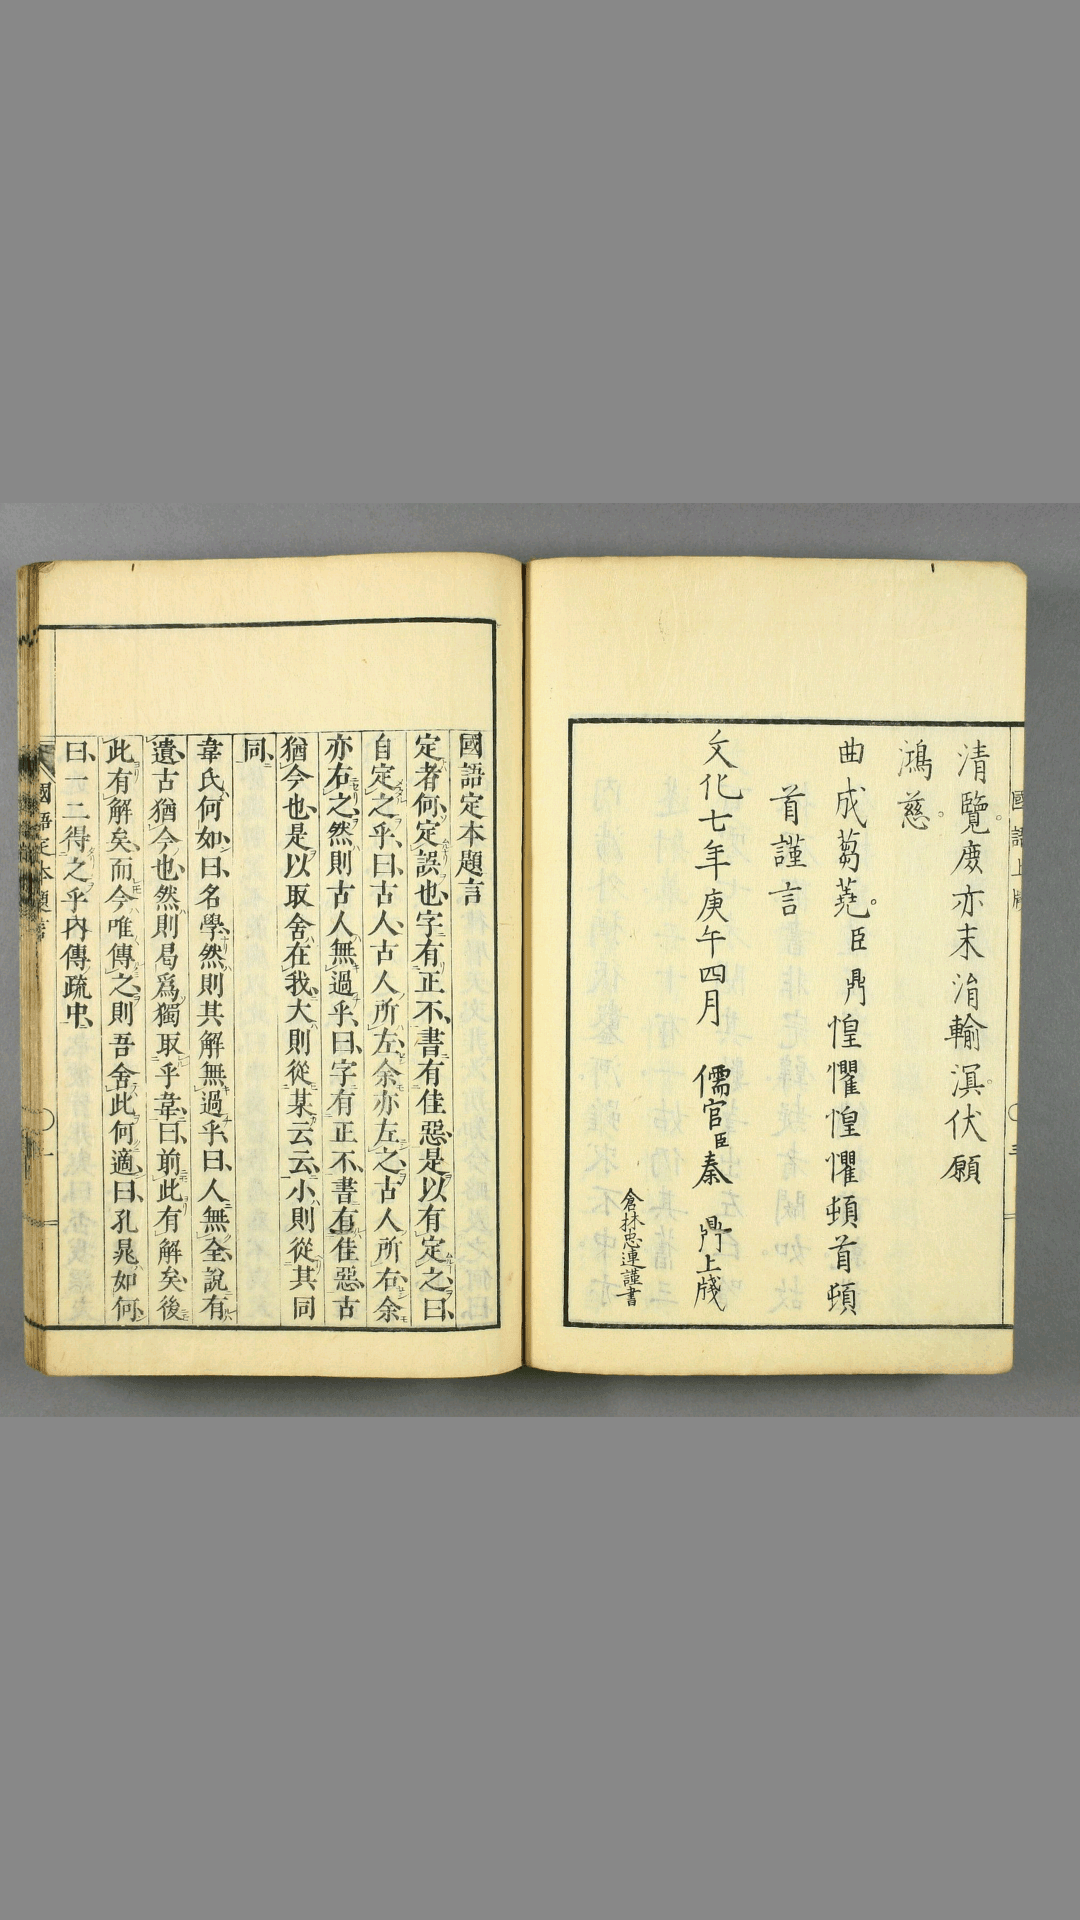 國語上牋
三
清覽。庻亦末涓輸溟。伏願
鴻慈。
曲成蒭蕘。臣鼎惶懼惶懼頓首頓
首謹言
文化七年庚午四月 儒官臣秦 鼎上牋
倉林忠連謹書
國語定本題言
定者何、定誤也、字有正不、書有佳惡、是以有定之、曰、
自定之乎、曰、古人、古人所左、余亦左之、古人所右、余
亦右之、然則古人無過乎、曰、字有正不、書有佳惡、古
猶今也、是以取舍在我、大則從某云云、小則從其同
同、
韋氏何如、曰、名學、然則其解無過乎、曰、人無全說、有
遺、古猶今也、然則曷爲獨取乎韋、曰、前此有解矣、後
此有解矣、而今唯傳之、則吾舍此何適、曰、孔晁如何、
曰、一二得之乎內傳疏中、
國語定本題言
一